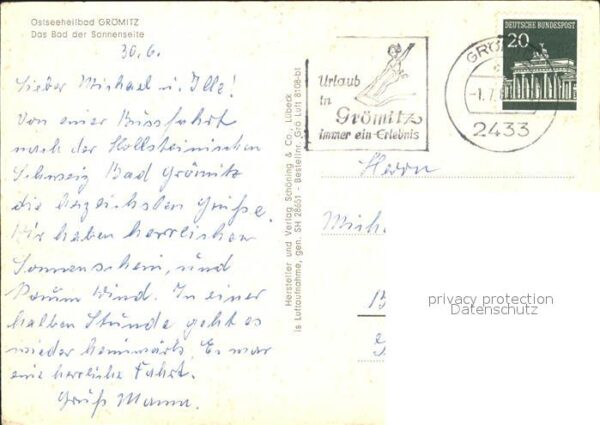 Ostseeheilbad GRÖMITZ
Das Bad der Sonnenseite
30.6.
Lieber Michael u. Ille!
Von einer Busfahrt
nach der Hollsteinischen
Schweiz Bad Grömitz
die herzlichsten Grüße.
Wir haben herrlichen
Sonnenschein, und
kaum Wind. In einer
halben Stunde geht es
wieder heimwärts. Es war
eine herrliche Fahrt.
Gruß Mama.
Hersteller und Verlag Schöning & Co., Lübeck
is Luftaufnahme, gen. SH 28651 - Bestellnr. Grö Luft 8108-bt
Urlaub
in
Grömitz
immer ein Erlebnis
GRÖ
-1.7.6
2433
DEUTSCHE BUNDESPOST
20
Herrn
Mich
privacy protection
Datenschutz